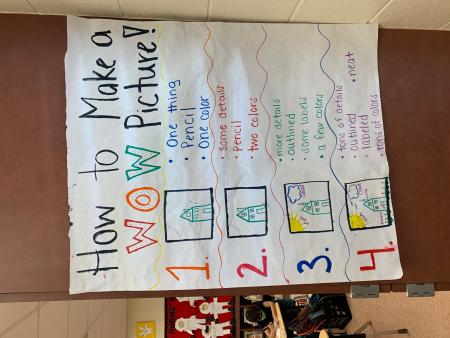 How to Make a
WOW Picture!
1.
• One thing
• Pencil
• One color
2.
• Some details
• Pencil
• two colors
3.
• more details
• outlined
• some labels
• a few colors
4.
• tons of details
• outlined
• labeled
• tons of colors
• neat